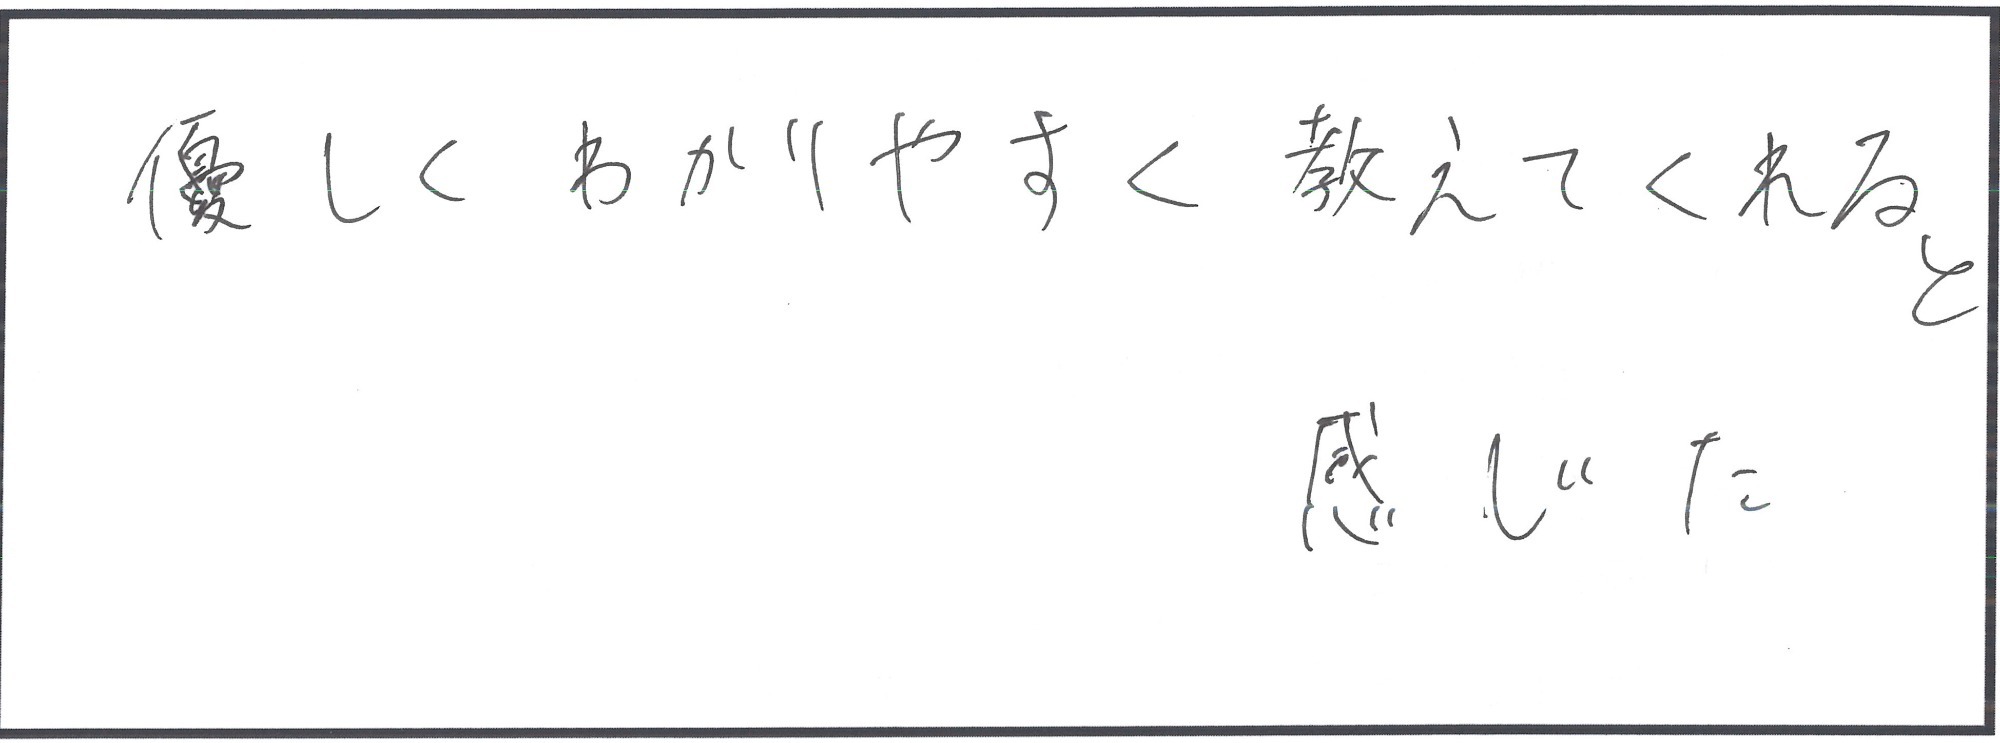 優しくわかりやすく教えてくれると
感じた